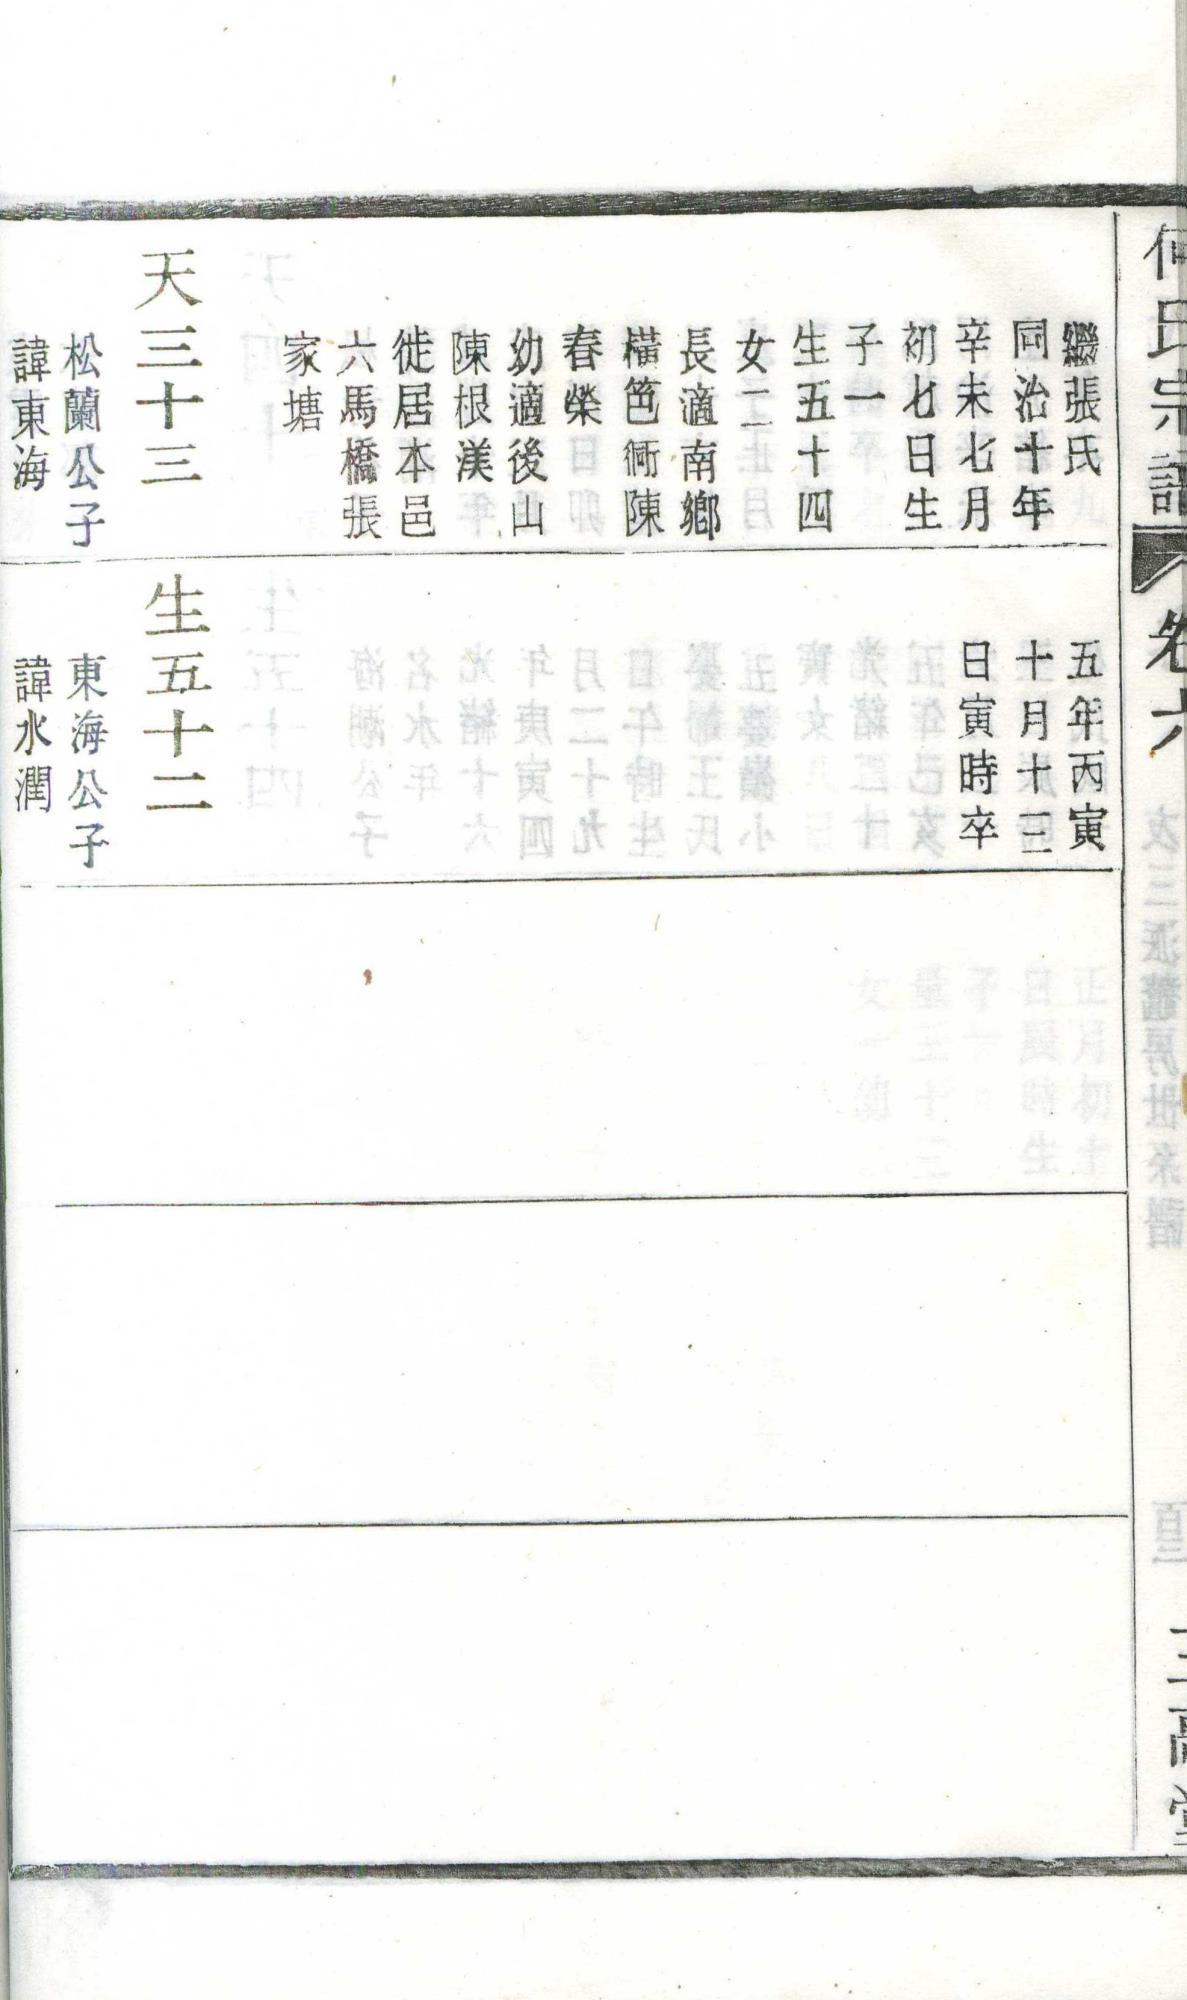 何氏宗譜
卷六
繼張氏
同治十年
辛未七月
初七日生
子一
生五十四
女二
長適南鄉
橫笆衕陳
春榮
幼適後山
陳根渼
徙居本邑
六馬橋張
家塘
天三十三
松蘭公子
諱東海
五年丙寅
十月十三
日寅時卒
生五十二
東海公子
諱水潤